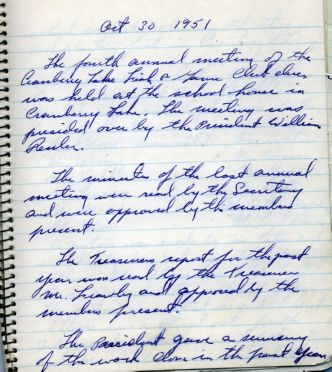 Oct 30 1951
The fourth annual meeting of the
Cranbery Lake Fish & Game Club
was held at the school house in
Cranberry Lake, The meeting was
presided over by the President William
The minutes of the last annual
meeting were read by the Secretary
and were approved by the members
present.
The Treasurers report for the past
year was read by the Treasurer
Mr. and approved by the
members present.
The President gave a summary
of the work done in the past year